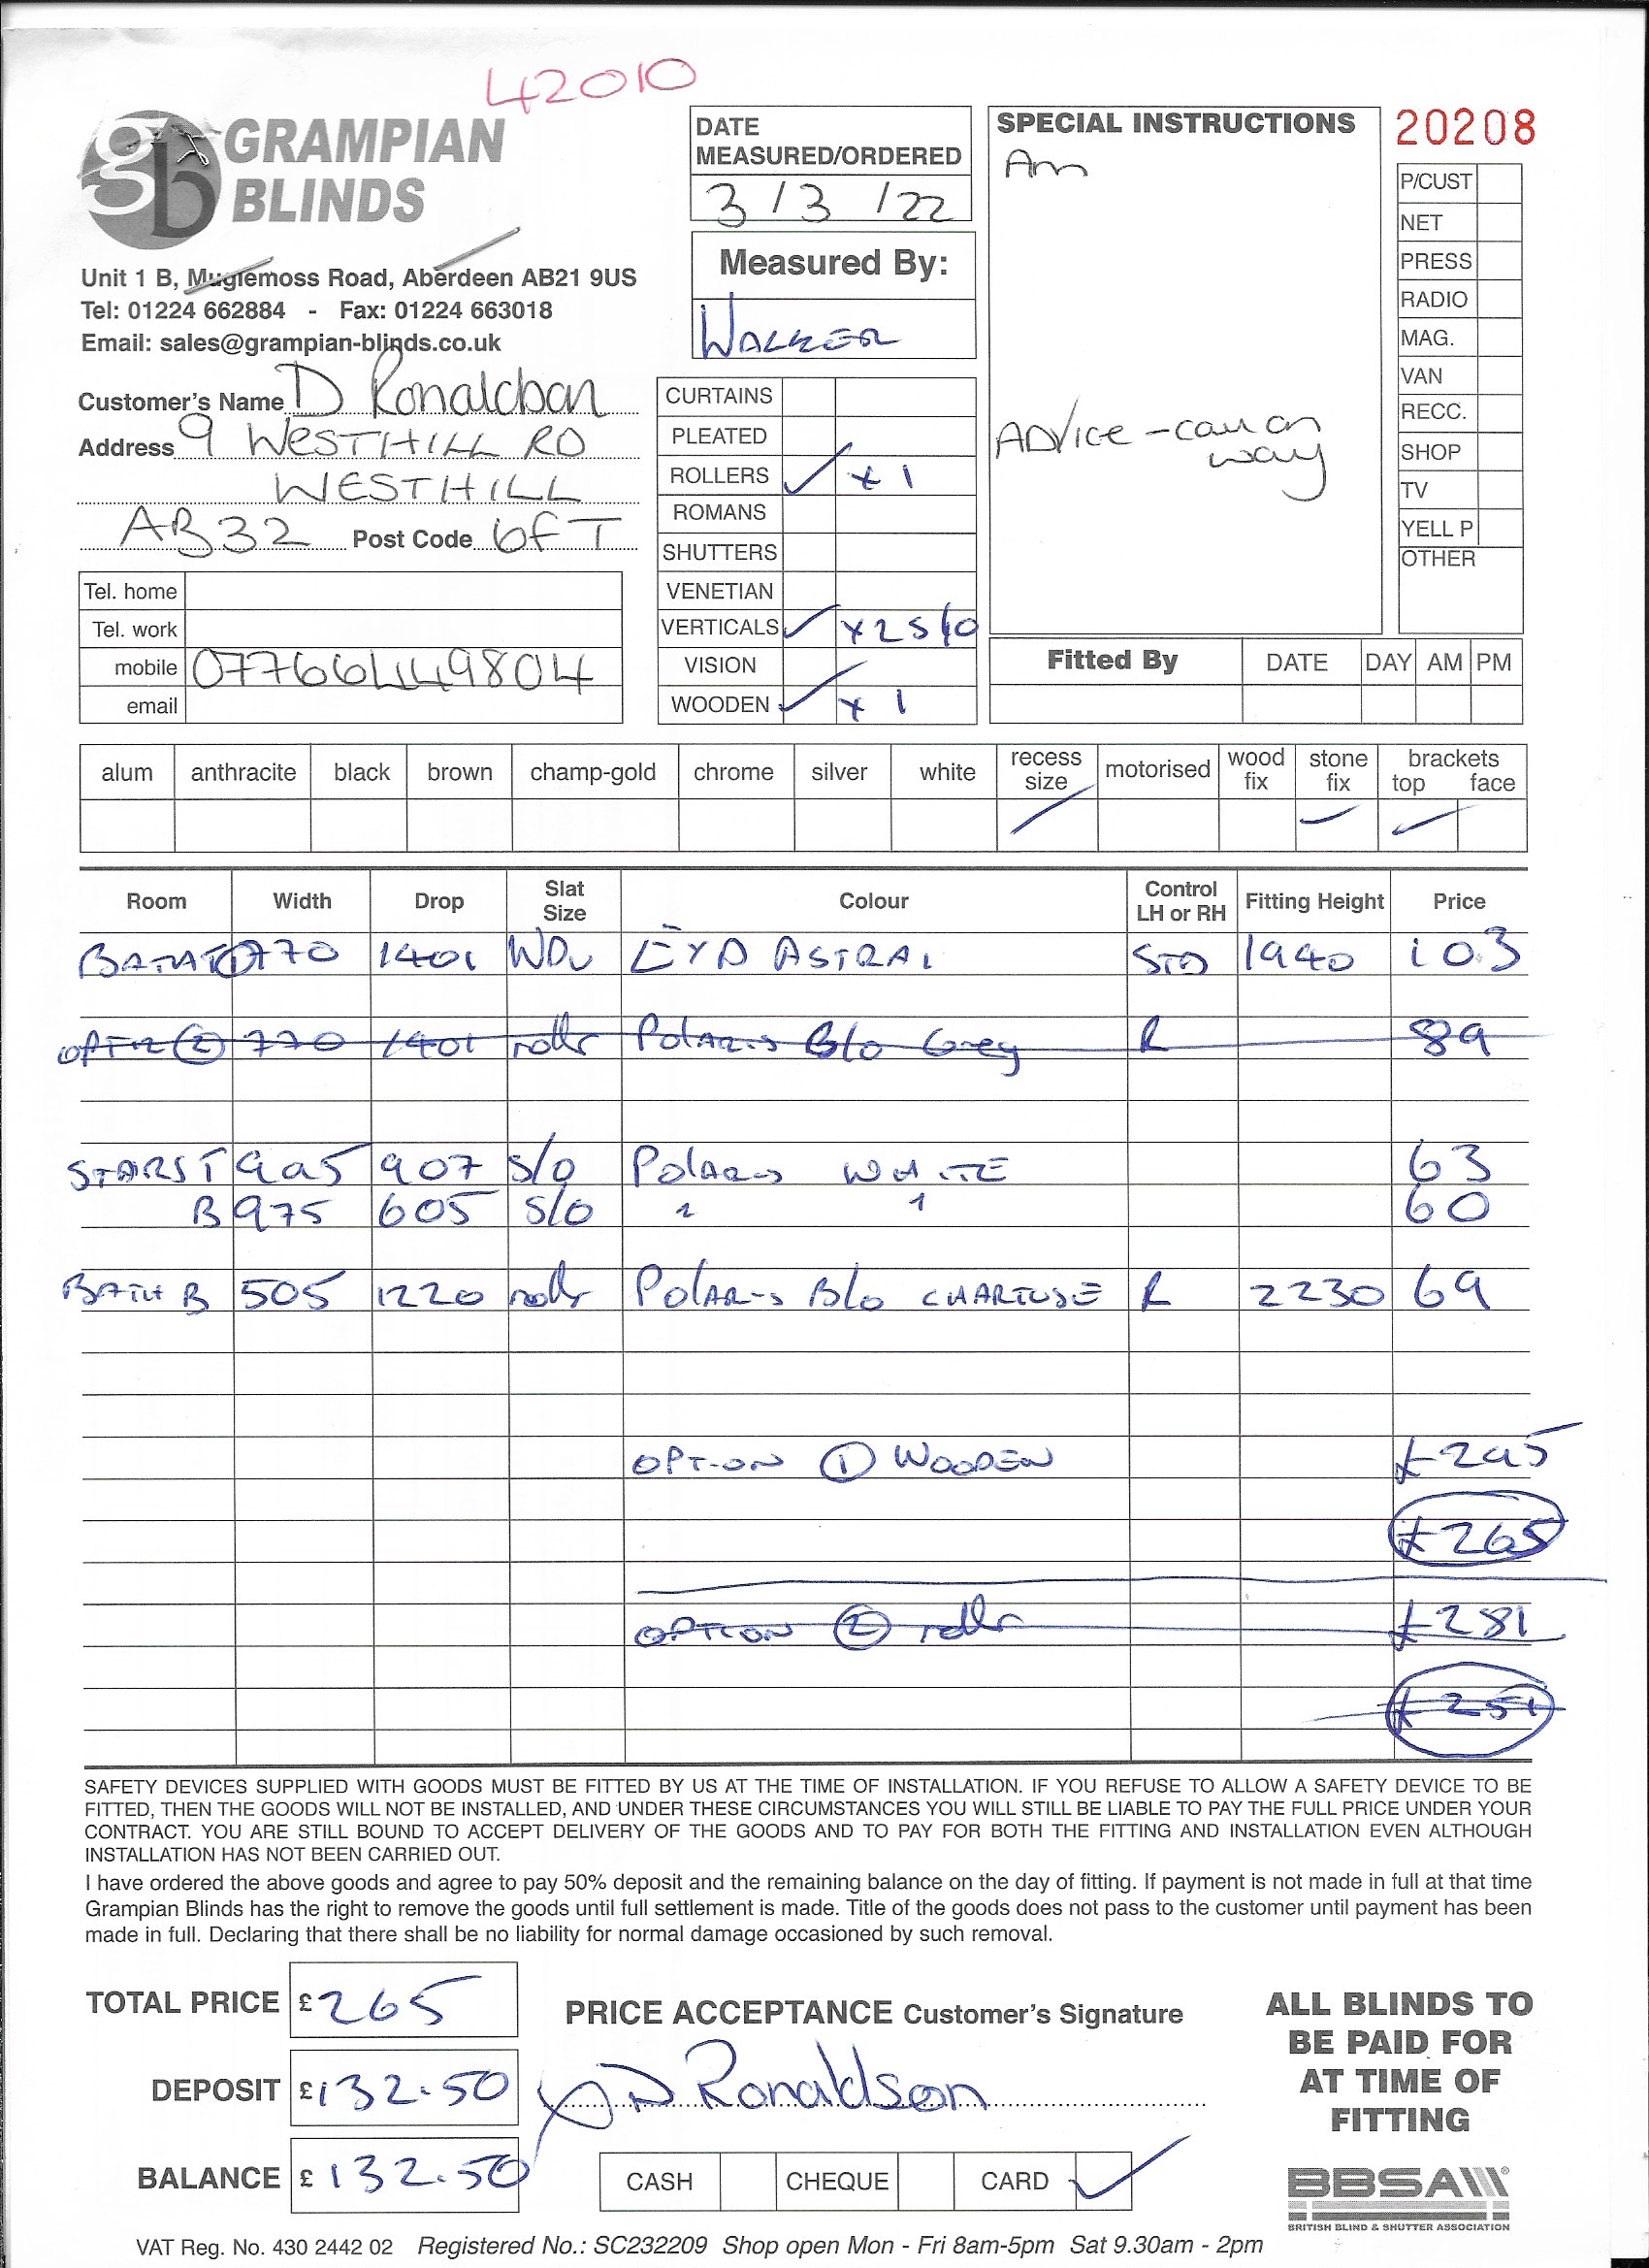 42010
GRAMPIAN
BLINDS
Unit 1 B, Mugiemoss Road, Aberdeen AB21 9US
Tel: 01224 662884 - Fax: 01224 663018
Email: sales@grampian-blinds.co.uk
Customer's Name D Ronaldson
Address 9 WESTHILL RD
WESTHILL
AB32 Post Code 6FT
Tel. home
Tel. work
mobile 07766449804
email
DATE
MEASURED/ORDERED
3 / 3 / 22
Measured By:
WALKER
CURTAINS
PLEATED
ROLLERS ✓ x 1
ROMANS
SHUTTERS
VENETIAN
VERTICALS ✓ x 2 S/O
VISION
WOODEN ✓ x 1
SPECIAL INSTRUCTIONS
Am
ADVICE - call on
way
20208
P/CUST
NET
PRESS
RADIO
MAG.
VAN
RECC.
SHOP
TV
YELL P
OTHER
Fitted By DATE DAY AM PM
alum anthracite black brown champ-gold chrome silver white recess size motorised wood fix stone fix brackets top face
Room Width Drop Slat Size Colour Control LH or RH Fitting Height Price
770 1401 ASTRAL STD 1940 103
OPTN (2) 770 1401 rollr POLARIS B/O Grey R 89
STAIRS T 995 907 S/O POLARIS WHITE 63
B 975 605 S/O " " 60
BATH B 505 1220 rollr POLARIS B/O CHARTUSE R 2230 69
OPTION (1) WOODEN £295
£265
OPTION (2) rollr £281
£251
SAFETY DEVICES SUPPLIED WITH GOODS MUST BE FITTED BY US AT THE TIME OF INSTALLATION. IF YOU REFUSE TO ALLOW A SAFETY DEVICE TO BE
FITTED, THEN THE GOODS WILL NOT BE INSTALLED, AND UNDER THESE CIRCUMSTANCES YOU WILL STILL BE LIABLE TO PAY THE FULL PRICE UNDER YOUR
CONTRACT. YOU ARE STILL BOUND TO ACCEPT DELIVERY OF THE GOODS AND TO PAY FOR BOTH THE FITTING AND INSTALLATION EVEN ALTHOUGH
INSTALLATION HAS NOT BEEN CARRIED OUT.
I have ordered the above goods and agree to pay 50% deposit and the remaining balance on the day of fitting. If payment is not made in full at that time
Grampian Blinds has the right to remove the goods until full settlement is made. Title of the goods does not pass to the customer until payment has been
made in full. Declaring that there shall be no liability for normal damage occasioned by such removal.
TOTAL PRICE £265
DEPOSIT £132.50
BALANCE £132.50
PRICE ACCEPTANCE Customer's Signature
X D Ronaldson
CASH CHEQUE CARD ✓
ALL BLINDS TO
BE PAID FOR
AT TIME OF
FITTING
BBSA
BRITISH BLIND & SHUTTER ASSOCIATION
VAT Reg. No. 430 2442 02 Registered No.: SC232209 Shop open Mon - Fri 8am-5pm Sat 9.30am - 2pm